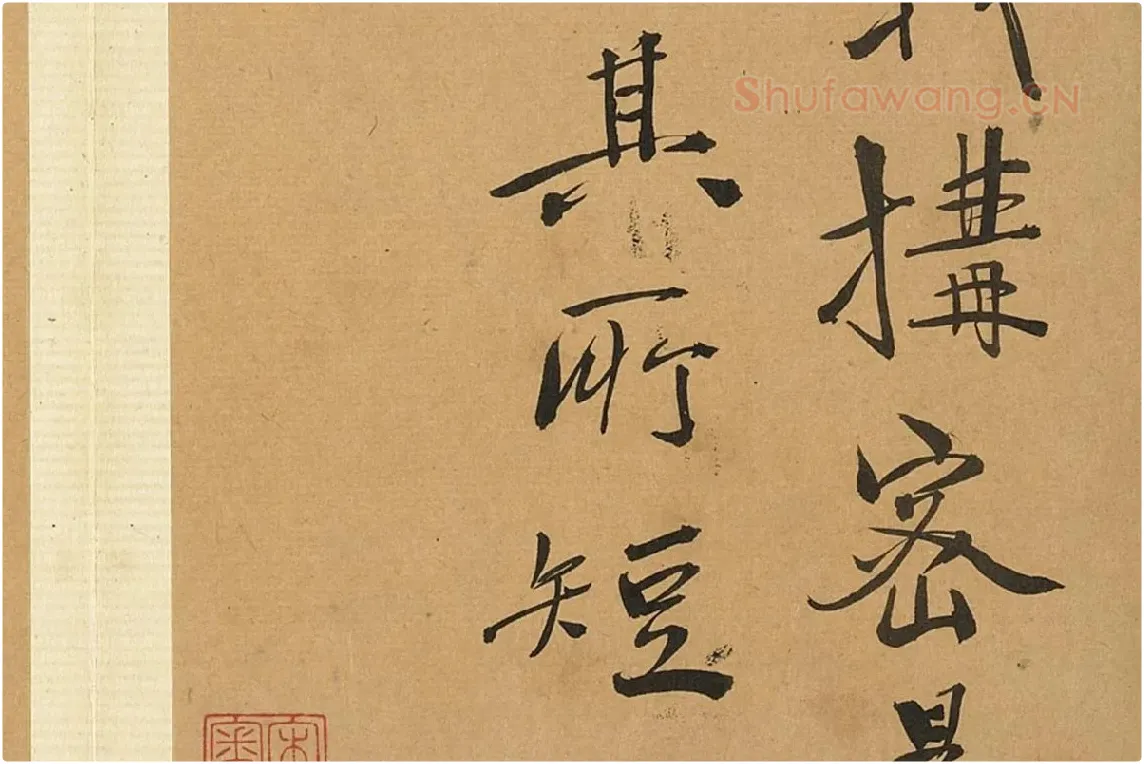 搆密是
其所短
Shufawang.CN